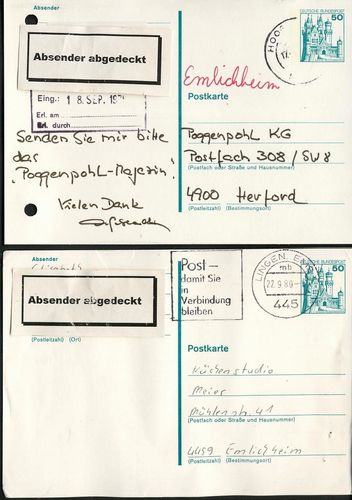 Absender
Absender abgedeckt
DEUTSCHE BUNDESPOST
50
Emlichheim
Eing.: 18. SEP.
Erl. am
Erl. durch
Postkarte
Senden Sie mir bitte
das
"Poggenpohl-Magazin".
Vielen Dank
Poggenpohl KG
Postfach 308 / SW8
(Postfach oder Straße und Hausnummer)
4900 Herford
(Postleitzahl) (Bestimmungsort)
Absender
Absender abgedeckt
(Postleitzahl) (Ort)
Post –
damit Sie
in
Verbindung
bleiben
LINGEN, E
mb
22.9.80
445
DEUTSCHE BUNDESPOST
50
Postkarte
Küchenstudio
Meier
Mühlenstr. 41
(Postfach oder Straße und Hausnummer)
4459 Emlichheim
(Postleitzahl) (Bestimmungsort)